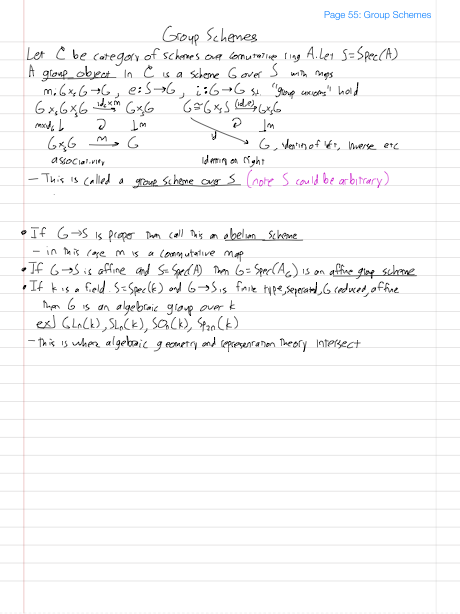 Page 55: Group Schemes
Group Schemes
Let C be category of schemes over commutative ring A. Let S=Spec(A)
A group object in C is a scheme G over S with maps
m: G×ₛG→G, e: S→G, i: G→G s.t. "group axioms" hold
G×ₛG×ₛG id×m→ G×ₛG G≅G×ₛS (id,e)→ G×ₛG
m×id ↓ ↻ ↓m id ↻ ↓m
G×ₛG m→ G G, identity of left, inverse etc
associativity identity on right
- This is called a group scheme over S (note S could be arbitrary)
• If G→S is proper then call this an abelian scheme
- in this case m is a commutative map
• If G→S is affine and S=Spec(A) then G=Spec(A_G) is an affine group scheme
• If k is a field. S=Spec(k) and G→S is finite type, seperated, G reduced, affine
then G is an algebraic group over k
ex] GLn(k), SLn(k), SOn(k), Sp₂n(k)
- this is where algebraic geometry and representation theory intersect